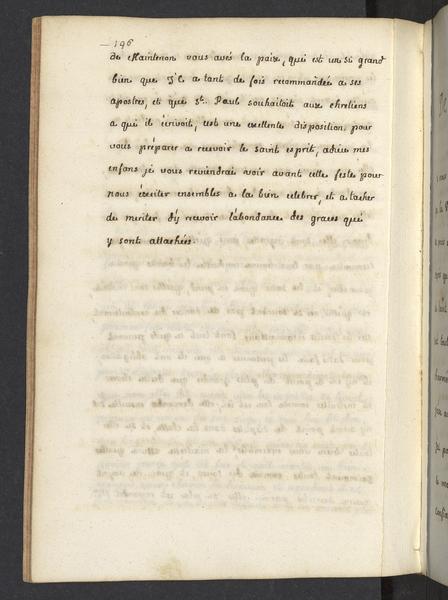 196
de Maintenon vous avés la paix, qui est un si grand
bien que J.C. a tant de fois recommandée a ses
apostres, et que St. Paul souhaitoit aux chretiens
a qui il écrivoit, c'est une exellente disposition pour
vous préparer a recevoir le saint esprit, adieu mes
enfans je vous reviendrai voir avant cette feste pour
nous éxciter ensembles a la bien celebrer, et a tacher
de meriter d'y recevoir l'abondance des graces qui
y sont attachées.